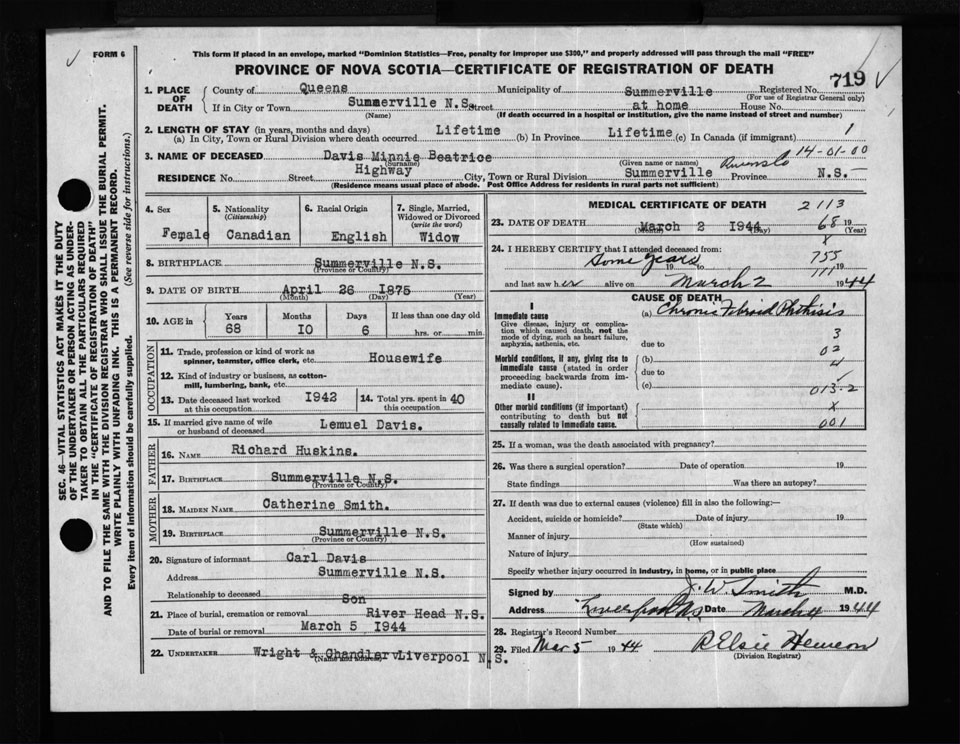 FORM 6
This form if placed in an envelope, marked "Dominion Statistics—Free, penalty for improper use $300," and properly addressed will pass through the mail "FREE"
PROVINCE OF NOVA SCOTIA—CERTIFICATE OF REGISTRATION OF DEATH
719
1. PLACE OF DEATH
County of Queens Municipality of Summerville Registered No.
(For use of Registrar General only)
If in City or Town Summerville N.S. Street at home House No.
(Name) (If death occurred in a hospital or institution, give the name instead of street and number)
2. LENGTH OF STAY (in years, months and days)
(a) In City, Town or Rural Division where death occurred Lifetime (b) In Province Lifetime (c) In Canada (if immigrant) 1
14-01-00
3. NAME OF DECEASED Davis Minnie Beatrice
(Surname) (Given name or names)
RESIDENCE No. Street Highway City, Town or Rural Division Summerville Province N.S.
(Residence means usual place of abode. Post Office Address for residents in rural parts not sufficient)
4. Sex Female
5. Nationality (Citizenship) Canadian
6. Racial Origin English
7. Single, Married, Widowed or Divorced (write the word) Widow
8. BIRTHPLACE Summerville N.S.
(Province or Country)
9. DATE OF BIRTH April 26 1875
(Month) (Day) (Year)
10. AGE in Years 68 Months 10 Days 6 If less than one day old hrs. or min.
OCCUPATION
11. Trade, profession or kind of work as spinner, teamster, office clerk, etc. Housewife
12. Kind of industry or business, as cotton-mill, lumbering, bank, etc.
13. Date deceased last worked at this occupation 1942
14. Total yrs. spent in this occupation 40
15. If married give name of wife or husband of deceased Lemuel Davis.
FATHER
16. NAME Richard Huskins.
17. BIRTHPLACE Summerville N.S.
(Province or Country)
MOTHER
18. MAIDEN NAME Catherine Smith.
19. BIRTHPLACE Summerville N.S.
(Province or Country)
20. Signature of informant Carl Davis
Address Summerville N.S.
Relationship to deceased Son
21. Place of burial, cremation or removal River Head N.S.
Date of burial or removal March 5 1944
22. UNDERTAKER Wright & Chandler Liverpool N.S.
(Name and address)
MEDICAL CERTIFICATE OF DEATH
2113
23. DATE OF DEATH March 2 1944 68 19
(Month) (Day) (Year)
X
24. I HEREBY CERTIFY that I attended deceased from: 755
Some years 19 to 111 19
and last saw her alive on March 2 1944
CAUSE OF DEATH
I
Immediate cause
Give disease, injury or complication which caused death, not the mode of dying, such as heart failure, asphyxia, asthenia, etc.
(a) Chronic Fibroid Phthisis
due to 3
Morbid conditions, if any, giving rise to immediate cause (stated in order proceeding backwards from immediate cause).
(b) 02
due to 4
(c)
013-2
II
Other morbid conditions (if important) contributing to death but not causally related to immediate cause.
X
001
25. If a woman, was the death associated with pregnancy?
26. Was there a surgical operation? Date of operation 19
State findings Was there an autopsy?
27. If death was due to external causes (violence) fill in also the following:—
Accident, suicide or homicide? Date of injury 19
(State which)
Manner of injury
(How sustained)
Nature of injury
Specify whether injury occurred in industry, in home, or in public place
Signed by J. W. Smith M.D.
Address Liverpool NS Date March 4 1944
28. Registrar's Record Number
29. Filed Mar 5 1944 R Elsie Hemeon
(Division Registrar)
SEC. 46—VITAL STATISTICS ACT MAKES IT THE DUTY
OF THE UNDERTAKER OR PERSON ACTING AS UNDER-
TAKER TO OBTAIN ALL THE PARTICULARS REQUIRED
IN THE "CERTIFICATE OF REGISTRATION OF DEATH"
AND TO FILE THE SAME WITH THE DIVISION REGISTRAR WHO SHALL ISSUE THE BURIAL PERMIT.
WRITE PLAINLY WITH UNFADING INK. THIS IS A PERMANENT RECORD.
Every item of information should be carefully supplied. (See reverse side for instructions.)